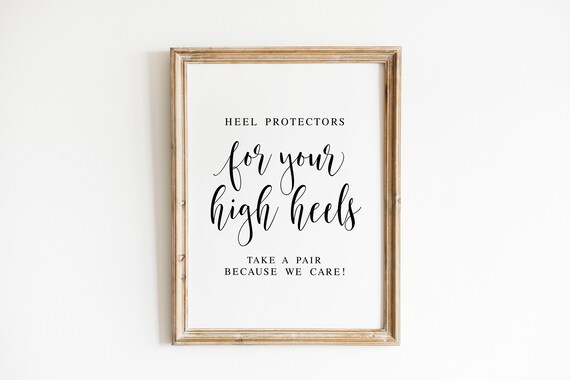 HEEL PROTECTORS
for your
high heels
TAKE A PAIR
BECAUSE WE CARE!